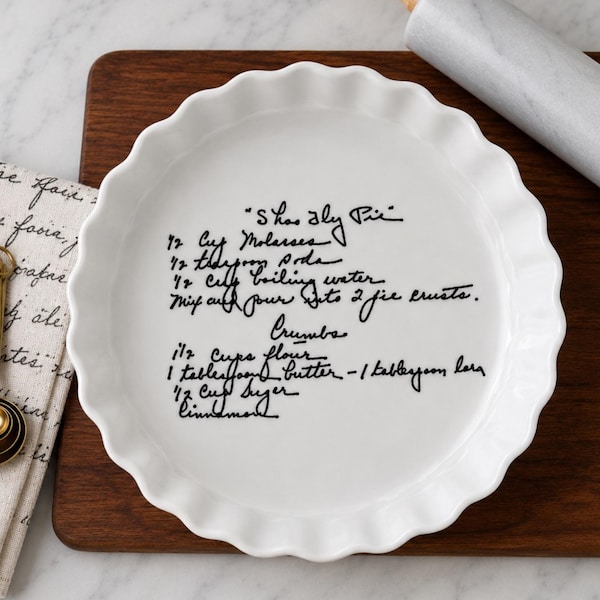 "Shoo Fly Pie"
1/2 Cup Molasses
1/2 teaspoon soda
1/2 cup boiling water
Mix and pour into 2 pie crusts.
Crumbs
1 1/2 cups flour
1 tablespoon butter - 1 tablespoon
1/2 cup sugar
Cinnamon